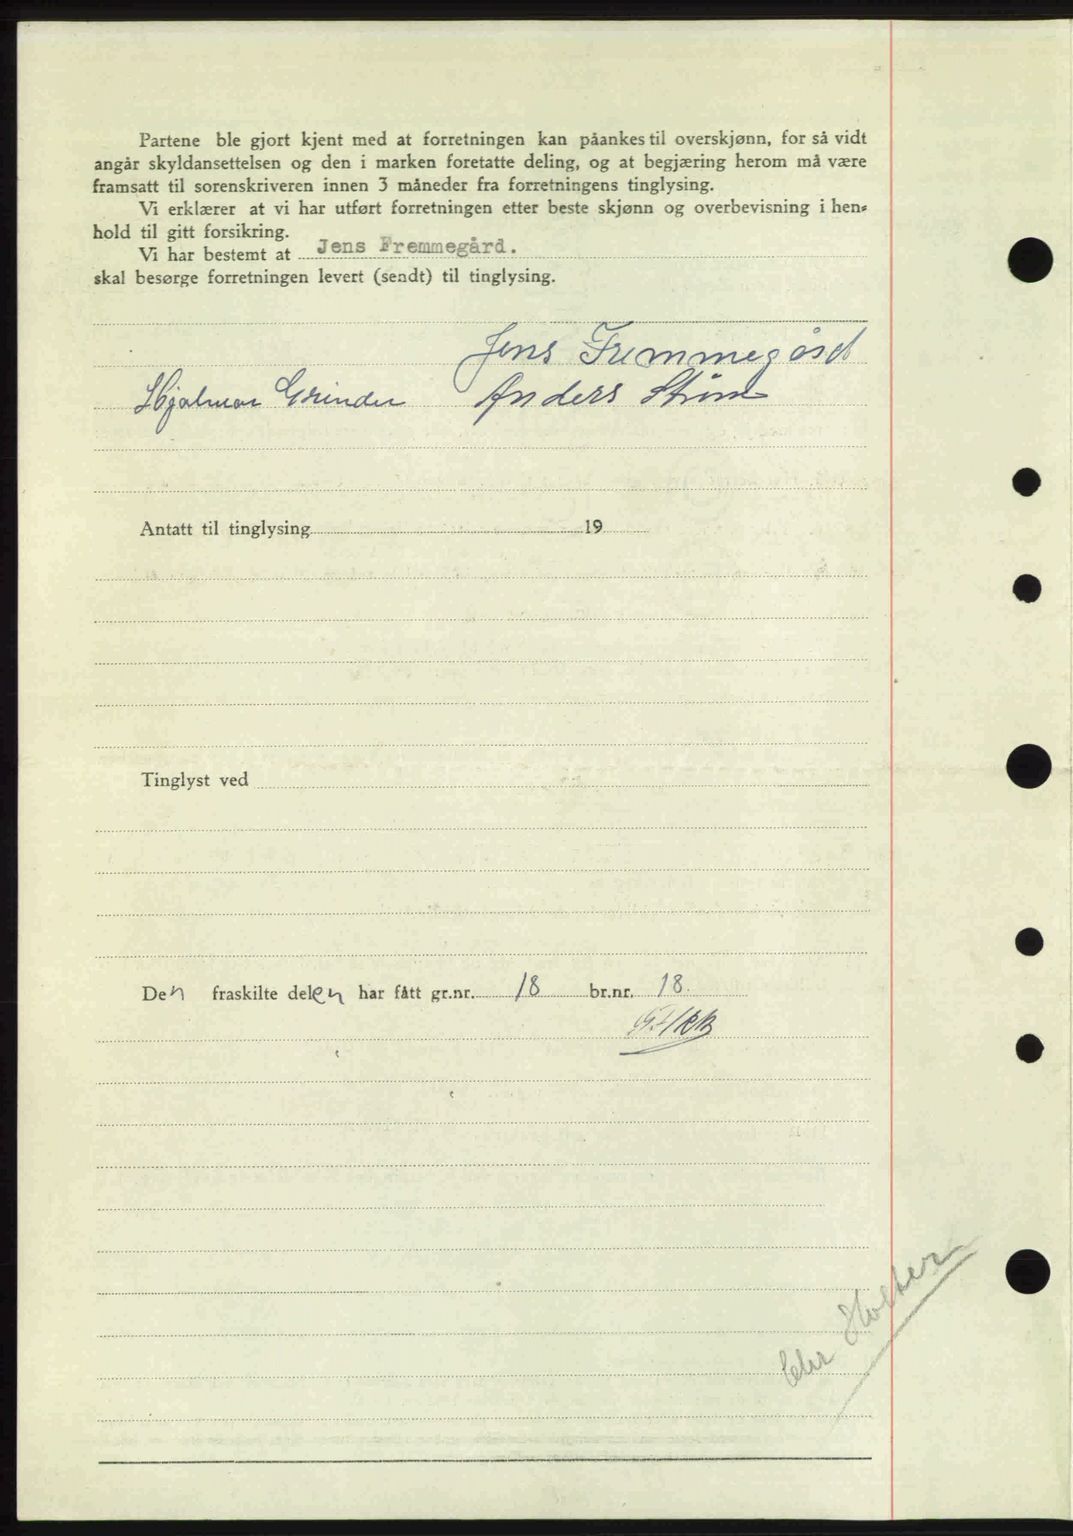 Partene ble gjort kjent med at forretningen kan påankes til overskjønn, for så vidt
angår skyldansettelsen og den i marken foretatte deling, og at begjæring herom må være
framsatt til sorenskriveren innen 3 måneder fra forretningens tinglysing.
Vi erklærer at vi har utført forretningen etter beste skjønn og overbevisning i hen-
hold til gitt forsikring.
Vi har bestemt at Jens Fremmegård.
skal besørge forretningen levert (sendt) til tinglysing.
Jens Fremmegård
Hjalmar Grinder Anders Strøm
Antatt til tinglysing 19
Tinglyst ved
Den fraskilte delen har fått gr.nr. 18 br.nr. 18.
Chr Holter